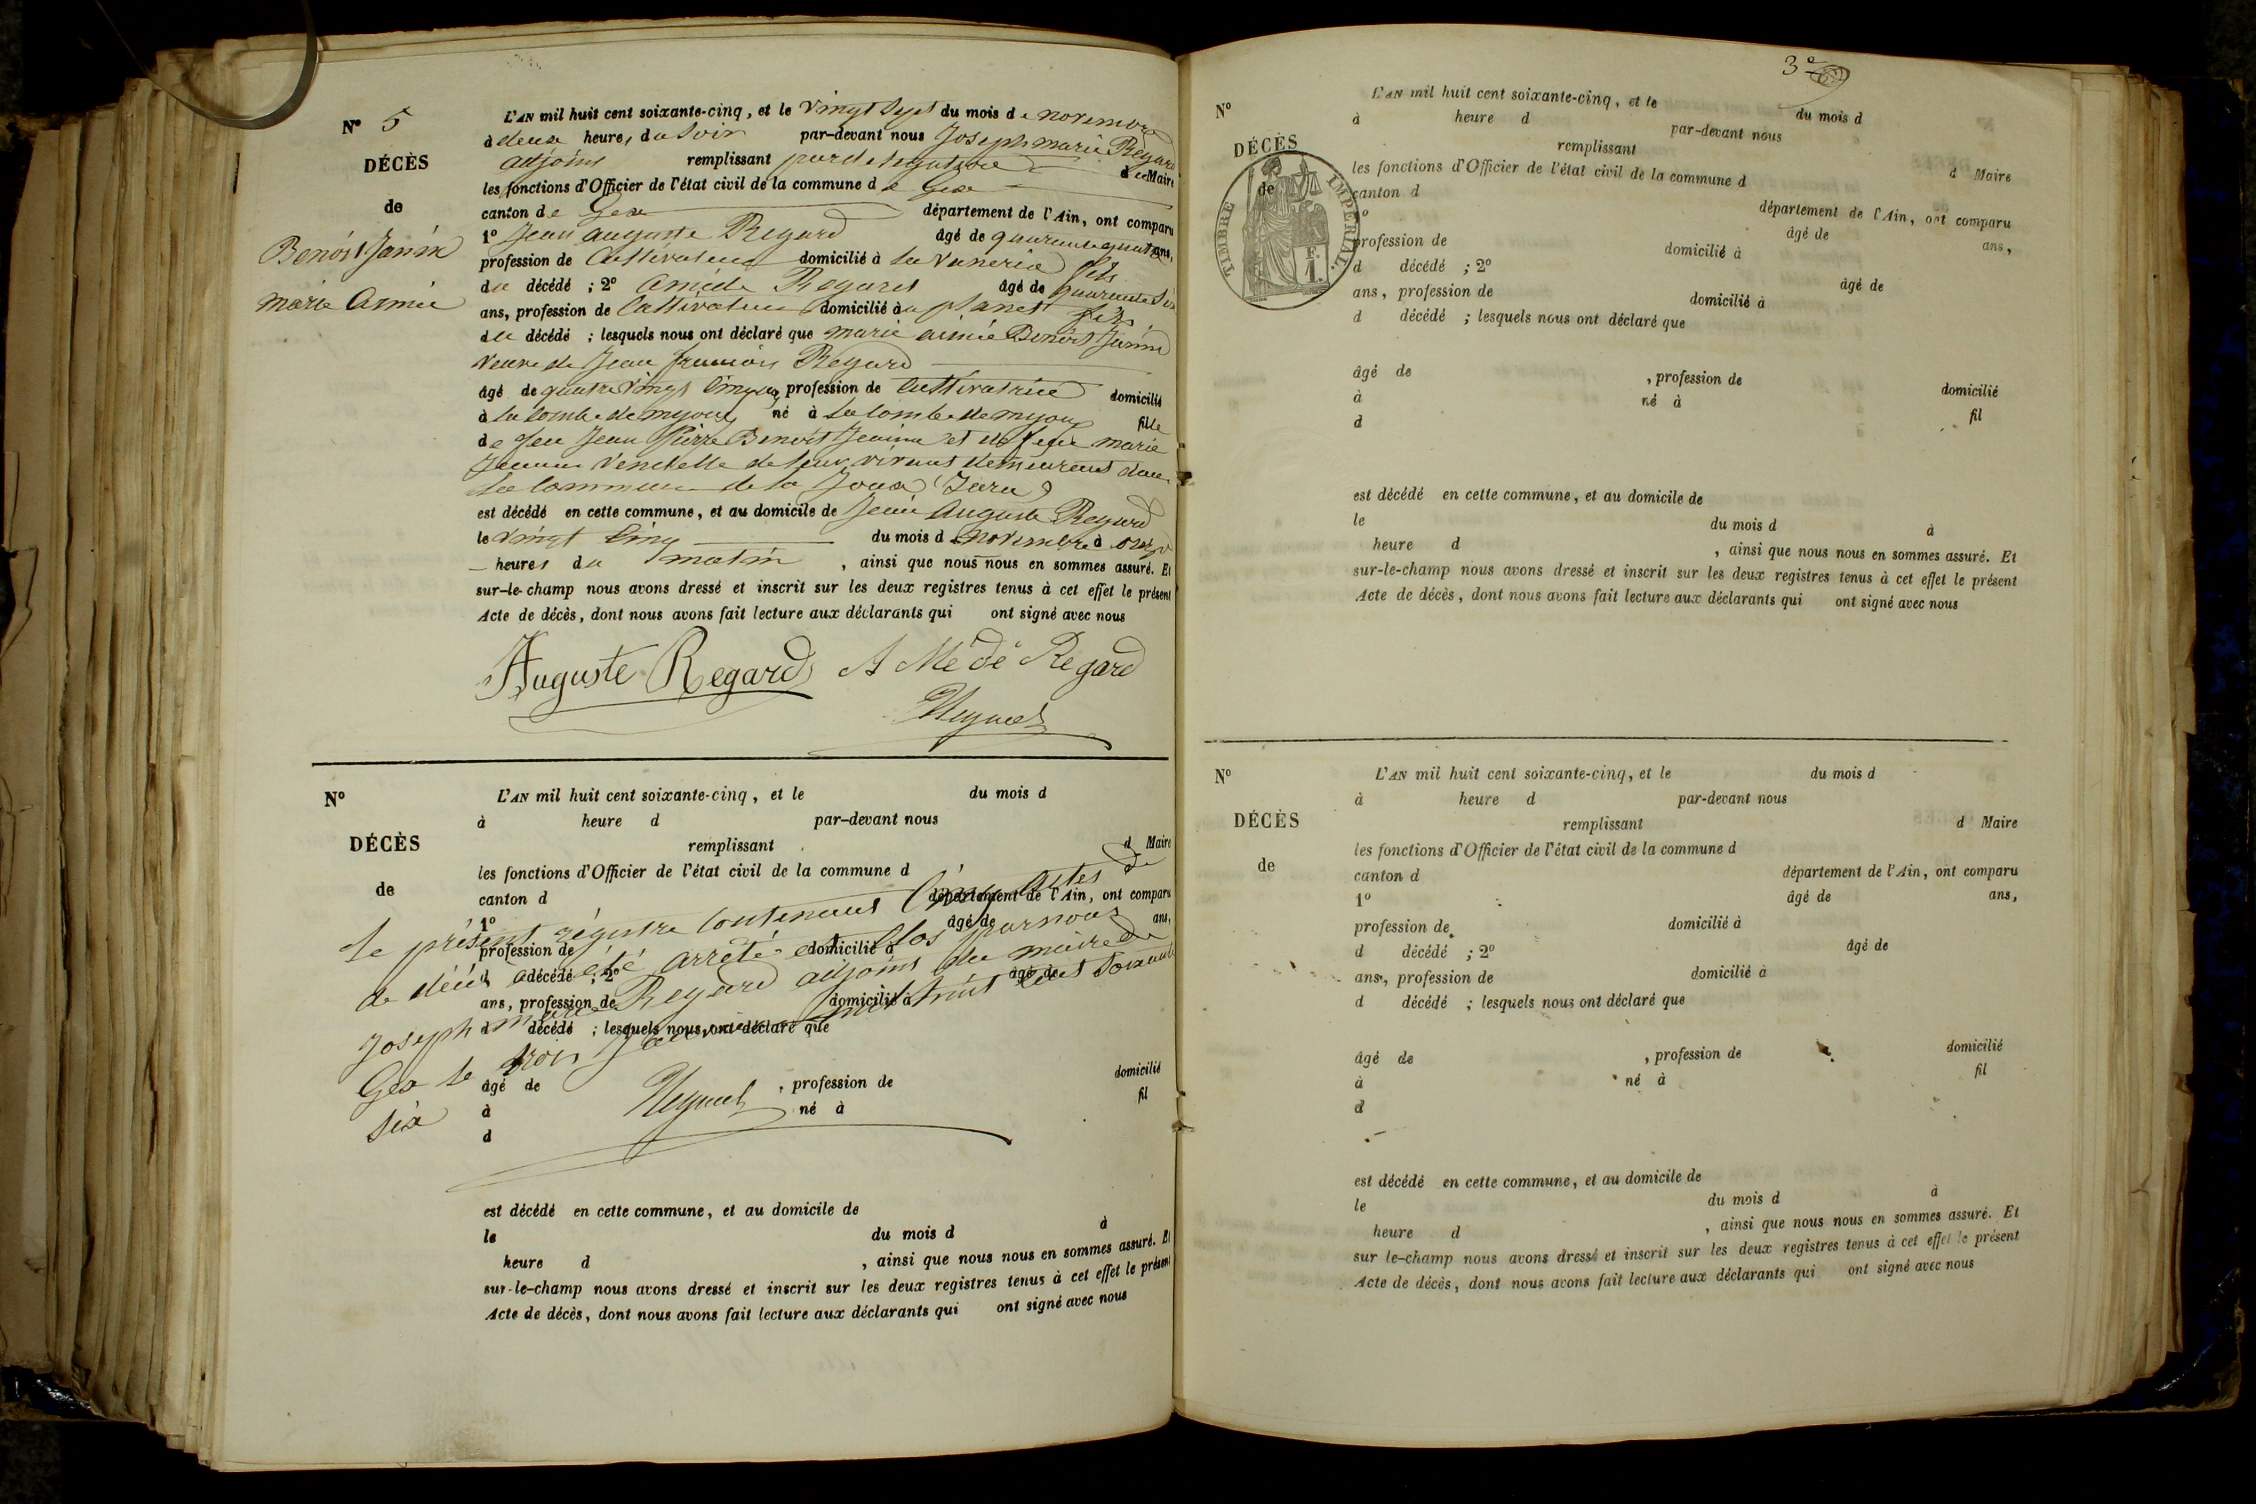 N° 5
DÉCÈS
de
Benoit Janin
marie Aimée
L'AN mil huit cent soixante-cinq, et le vingt Sept du mois de novembre
à deux heures du Soir par-devant nous Joseph marie Regard
adjoint remplissant par délégation du Maire
les fonctions d'Officier de l'état civil de la commune de Gex
canton de Gex département de l'Ain, ont comparu
1° Jean Auguste Regard âgé de quarante quatre ans,
profession de Cultivateur domicilié à la Vaneria fils
du décédé ; 2° Amédé Regard âgé de quarante Six
ans, profession de Cultivateur domicilié au planet fils
du décédé ; lesquels nous ont déclaré que marie aimée Benoit Janin
veuve de Jean francois Regard
âgé de quatre vingt Cinq ans, profession de Cultivatrice domicilié
à la Combe de mijoux né à la Combe de mijoux fille
de feu Jean Pierre Benoit Jeanin et de feue marie
Jeanne Vendelle de leur vivant demeurant dans
la Commune de la Joux (Jura)
est décédé en cette commune, et au domicile de Jean Auguste Regard
le vingt Cinq du mois de Novembre à onze
heures du matin , ainsi que nous nous en sommes assuré. Et
sur-le-champ nous avons dressé et inscrit sur les deux registres tenus à cet effet le présent
Acte de décès, dont nous avons fait lecture aux déclarants qui ont signé avec nous
Auguste Regard A Médé Regard
N°
DÉCÈS
de
L'AN mil huit cent soixante-cinq, et le du mois d
à heure d par-devant nous
remplissant d Maire
les fonctions d'Officier de l'état civil de la commune d
canton d département de l'Ain, ont comparu
1° âgé de ans,
profession de domicilié à
d décédé ; 2° âgé de
ans, profession de domicilié à
d décédé ; lesquels nous ont déclaré que
âgé de , profession de domicilié
à né à fil
d
Le présent régistre Contenant Cinq actes de
de décès a été arrêté et Clos par nous
Joseph marie Regard adjoint du maire de
Gex le trois Janvier mil huit Cent Soixante
Six
est décédé en cette commune, et au domicile de
le du mois d à
heure d , ainsi que nous nous en sommes assuré. Et
sur-le-champ nous avons dressé et inscrit sur les deux registres tenus à cet effet le présent
Acte de décès, dont nous avons fait lecture aux déclarants qui ont signé avec nous
3e
N°
DÉCÈS
de
TIMBRE IMPÉRIAL.
F.
1.
L'AN mil huit cent soixante-cinq, et le du mois d
à heure d par-devant nous
remplissant d Maire
les fonctions d'Officier de l'état civil de la commune d
canton d département de l'Ain, ont comparu
1° âgé de ans,
profession de domicilié à
d décédé ; 2° âgé de
ans, profession de domicilié à
d décédé ; lesquels nous ont déclaré que
âgé de , profession de domicilié
à né à fil
d
est décédé en cette commune, et au domicile de
le du mois d à
heure d , ainsi que nous nous en sommes assuré. Et
sur-le-champ nous avons dressé et inscrit sur les deux registres tenus à cet effet le présent
Acte de décès, dont nous avons fait lecture aux déclarants qui ont signé avec nous
N°
DÉCÈS
de
L'AN mil huit cent soixante-cinq, et le du mois d
à heure d par-devant nous
remplissant d Maire
les fonctions d'Officier de l'état civil de la commune d
canton d département de l'Ain, ont comparu
1° âgé de ans,
profession de domicilié à
d décédé ; 2° âgé de
ans, profession de domicilié à
d décédé ; lesquels nous ont déclaré que
âgé de , profession de domicilié
à né à fil
d
est décédé en cette commune, et au domicile de
le du mois d à
heure d , ainsi que nous nous en sommes assuré. Et
sur le-champ nous avons dressé et inscrit sur les deux registres tenus à cet effet le présent
Acte de décès, dont nous avons fait lecture aux déclarants qui ont signé avec nous